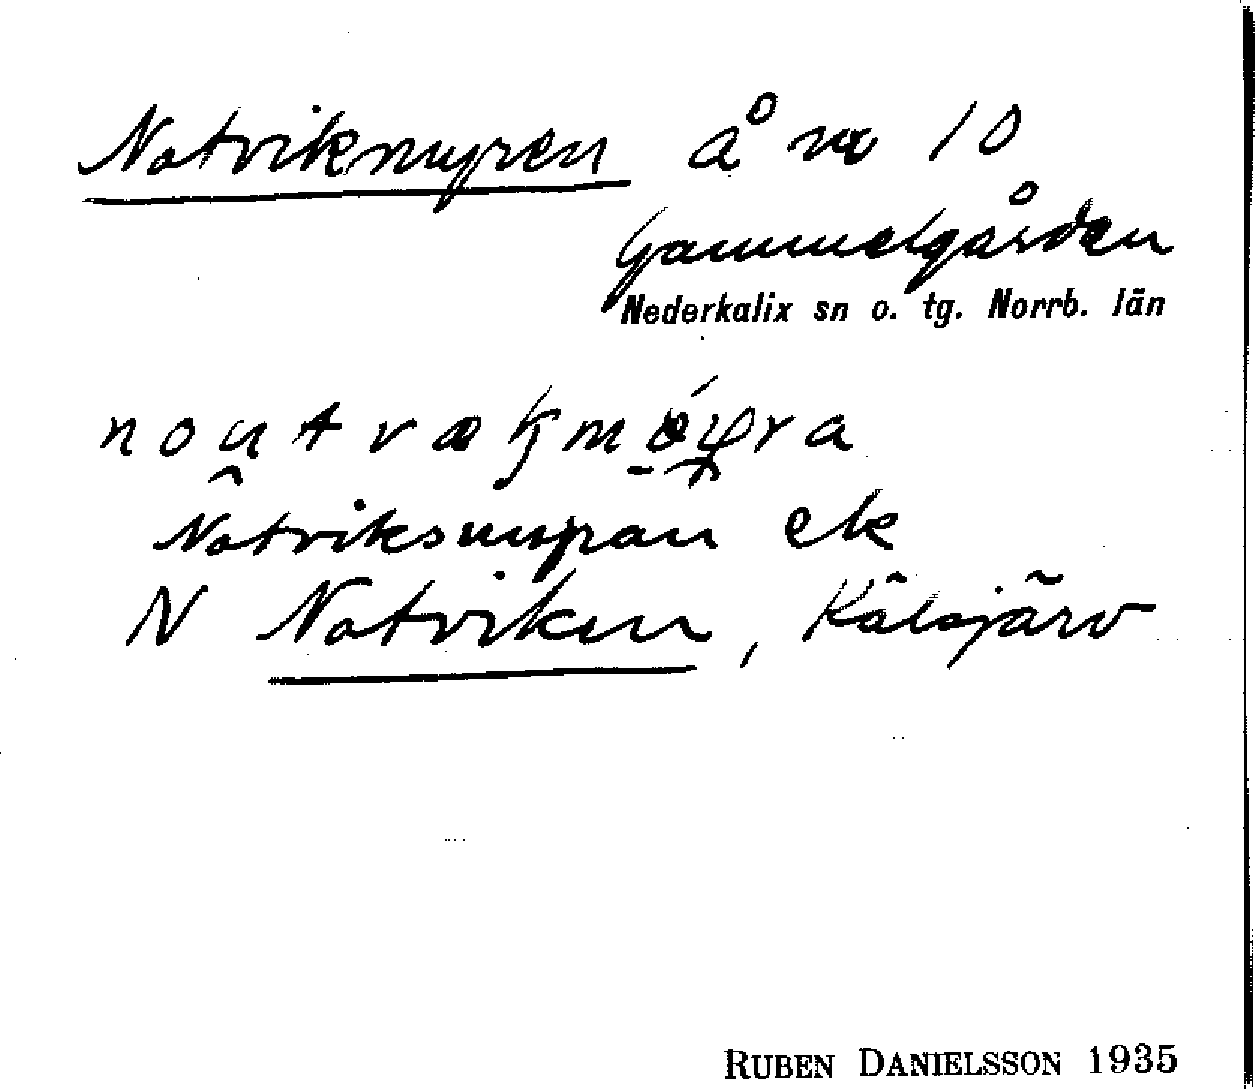 Notvikmyren å nr 10
Gammelgården
Nederkalix sn o. tg. Norrb. län
Notviksmyran ek
N Notviken, Kälsjärv
RUBEN DANIELSSON 1935